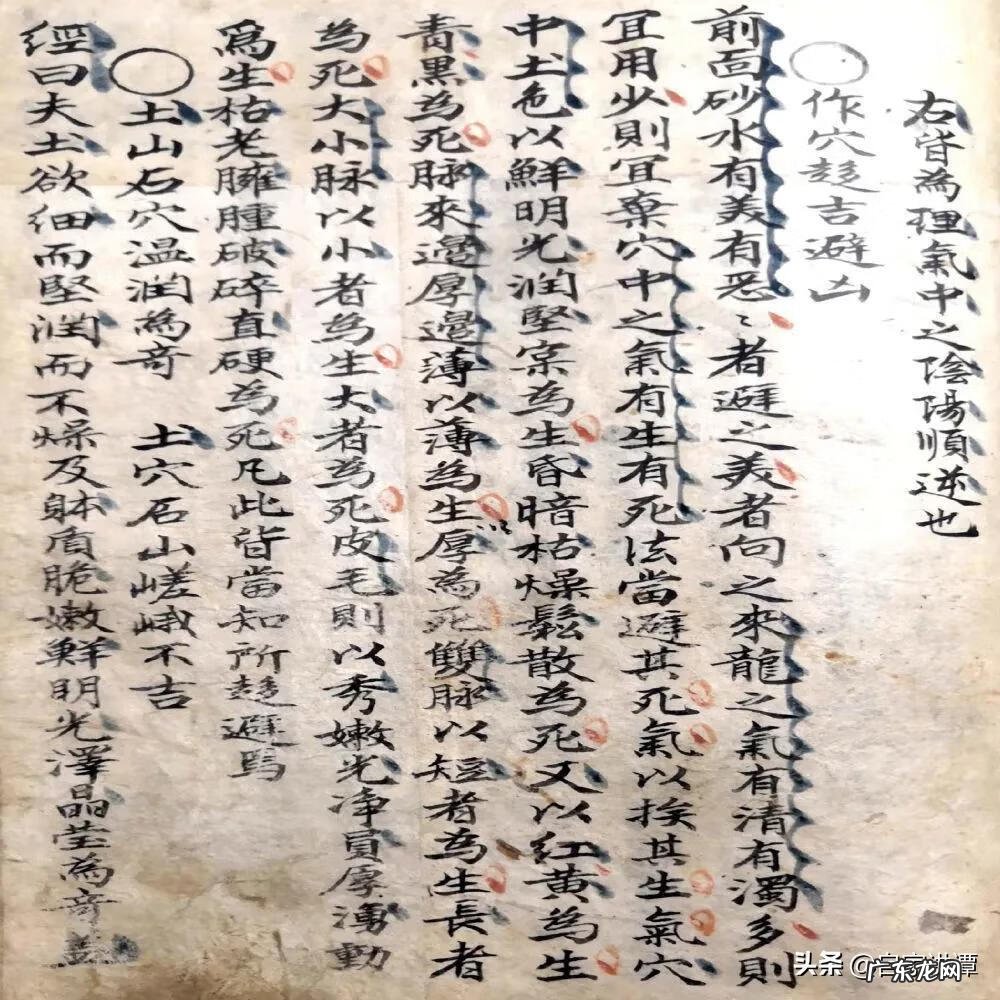 右皆為理氣中之陰陽順逆也
○作穴趍吉避凶
前面砂水有美有恶〻者避之美者向之來龍之氣有清有濁多則
宜用少則宜棄穴中之氣有生有死法當避其死氣以挨其生氣穴
中土色以鮮明光潤堅宲為生昏暗枯燥鬆散為死又以红黄為生
青黑為死脉來邉厚邉薄以薄為生厚為死雙脉以短者為生長者
以
為死大小脉以小者為生大者為死皮毛則以秀嫩光净員厚湧動
爲生枯老臃腫破碎直硬為死凡此皆當知所趍避焉
○土山石穴温潤為奇 土穴石山嵯峨不吉
經曰夫土欲细而堅潤而不燥及躰质脆嫩鮮明光澤晶莹為奇
头条
广东龙网